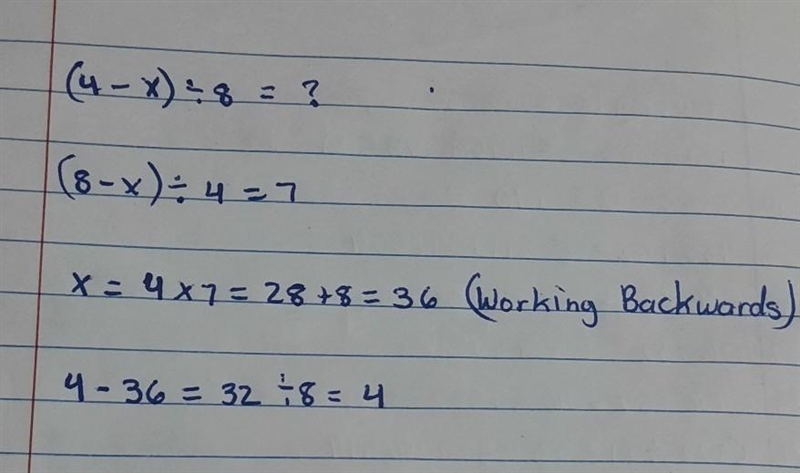 (4 - x) ÷ 8 = ?
(8 - x) ÷ 4 = 7
x = 4 x 7 = 28 + 8 = 36 (Working Backwards)
4 - 36 = 32 ÷ 8 = 4